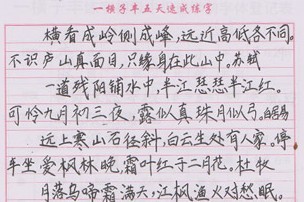 一横子半五天速成练字
横看成岭侧成峰，远近高低各不同。
不识庐山真面目，只缘身在此山中。苏轼
一道残阳铺水中，半江瑟瑟半江红。
可怜九月初三夜，露似真珠月似弓。白居易
远上寒山石径斜，白云生处有人家。停
车坐爱枫林晚，霜叶红于二月花。杜牧
月落乌啼霜满天，江枫渔火对愁眠。